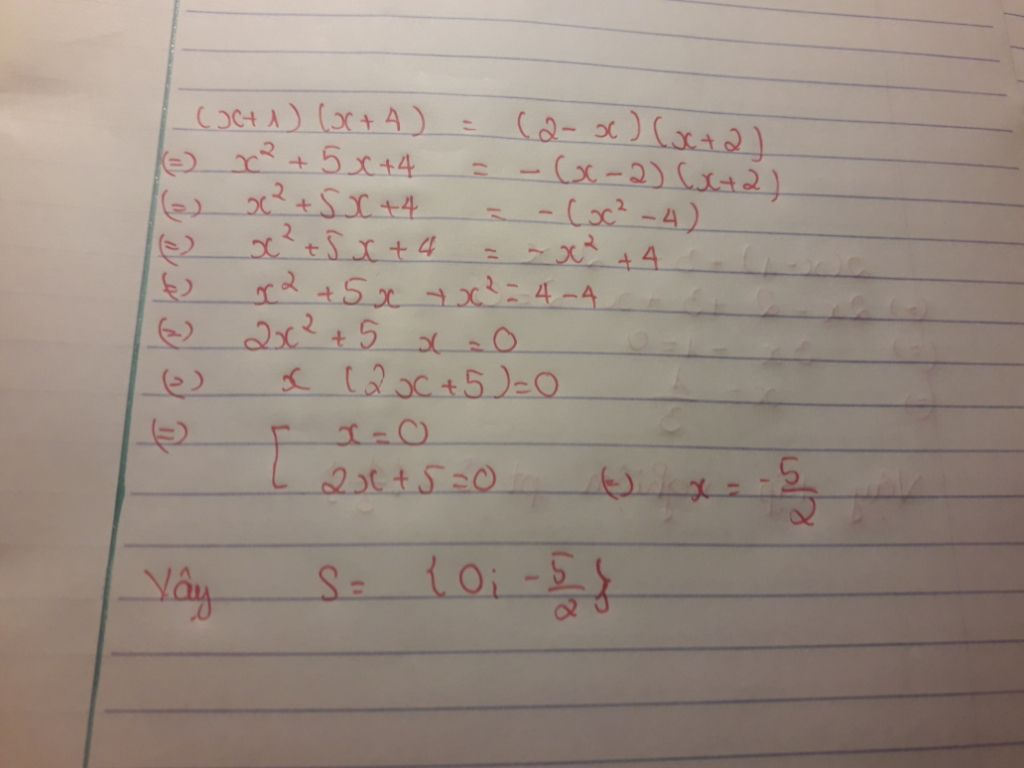 (x+1)(x+4) = (2-x)(x+2)
(=) x² + 5x+4 = -(x-2)(x+2)
(=) x²+5x+4 = -(x²-4)
(=) x²+5x+4 = -x²+4
(=) x²+5x+x²=4-4
(=) 2x²+5 x =0
(=) x (2x+5)=0
(=) [ x=0
2x+5=0 (=) x = -5/2
Vây S= {0; -5/2}